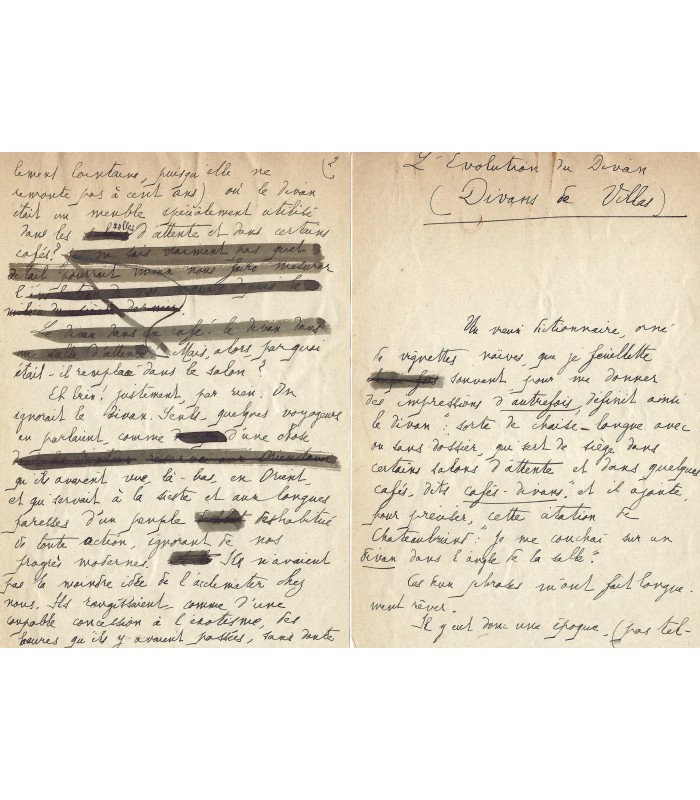 L'Évolution du Divan
(Divans de Villas)
Un vieux dictionnaire, orné
de vignettes naïves, que je feuillette
souvent pour me donner
des impressions d'autrefois, définit ainsi
le divan": sorte de chaise-longue avec
ou sans dossier, qui sert de siège dans
certains salons d'attente et dans quelques
cafés, dits cafés-divans", et il ajoute,
pour préciser, cette citation de
Chateaubriand: "Je me couchai sur un
divan dans l'angle de la salle".
Ces deux phrases m'ont fait longue-
ment rêver.
Il y eut donc une époque (pas tel-
2
lement lointaine, puisqu'elle ne
remonte pas à cent ans) où le divan
était un meuble spécialement utilisé
dans les salles d'attente et dans certains
cafés? Je ne sais vraiment pas quel
détail pourrait mieux nous faire mesurer
milieu du siècle dernier.
Le divan dans un café! le divan dans
une salle d'attente! Mais, alors par quoi
était-il remplacé dans le salon?
Eh bien! justement, par rien. On
ignorait le Divan. Seuls, quelques voyageurs
en parlaient, comme d'une chose
qu'ils avaient vue, là-bas, en Orient,
et qui servait à la sieste et aux longues
paresses d'un peuple deshabitué
de toute action, ignorant de nos
progrès modernes. Ils n'avaient
pas la moindre idée de l'acclimater chez
nous. Ils rougissaient, comme d'une
coupable concession à l'exotisme, des
heures qu'ils y avaient passées, sans doute